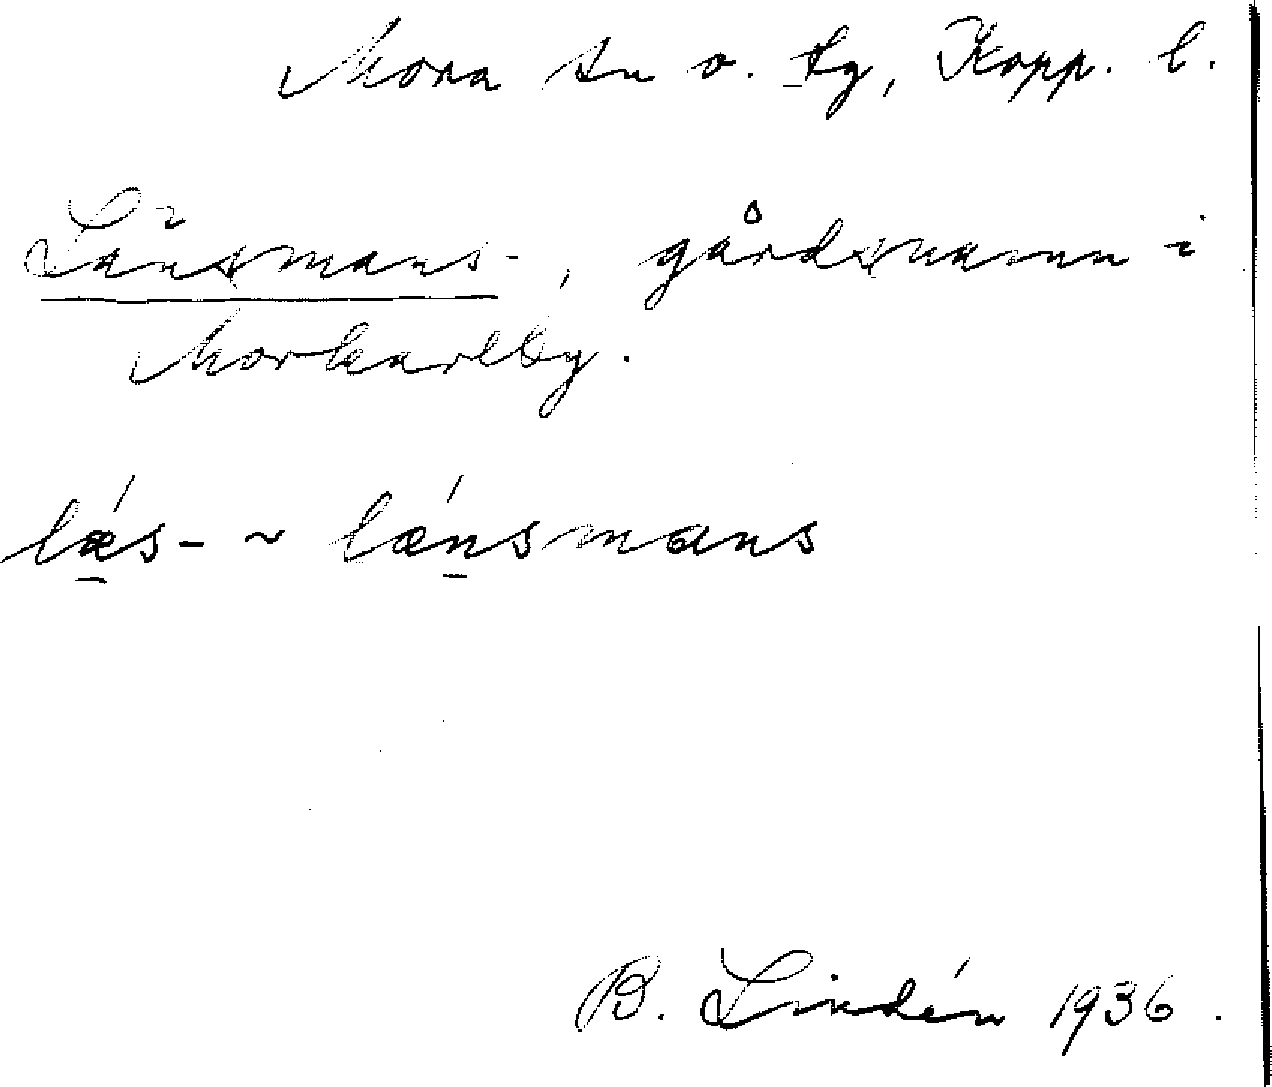 Mora sn o. tg, Kopp. l.
Länsmans-, gårdsnamn i
Morkarlby.
lǽs- ~ lǽnsmans
B. Lindén 1936.